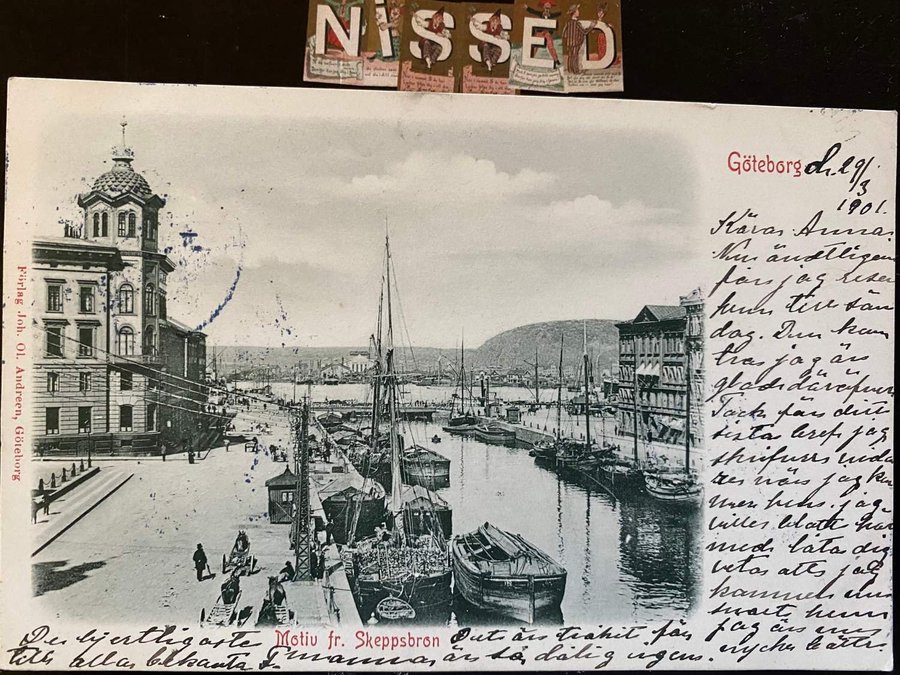 NiSSED
Göteborg d. 29/3
1901.
Kära Anna.
Nu äntligen
får jag resa
hem till sön
dag. Du kan
tro jag är
glad däröfver
Tack för ditt
sista bref jag
skrifver
när jag kom
mer hem. jag
ville blott här
med låta dig
veta att jag
kommer nu
snart hem
jag är nu
mycket bättre.
De hjertligaste
till alla bekanta
Det är tråkit för
mamma är så dålig igen.
Motiv fr. Skeppsbron
Förlag Joh. Ol. Andreen, Göteborg